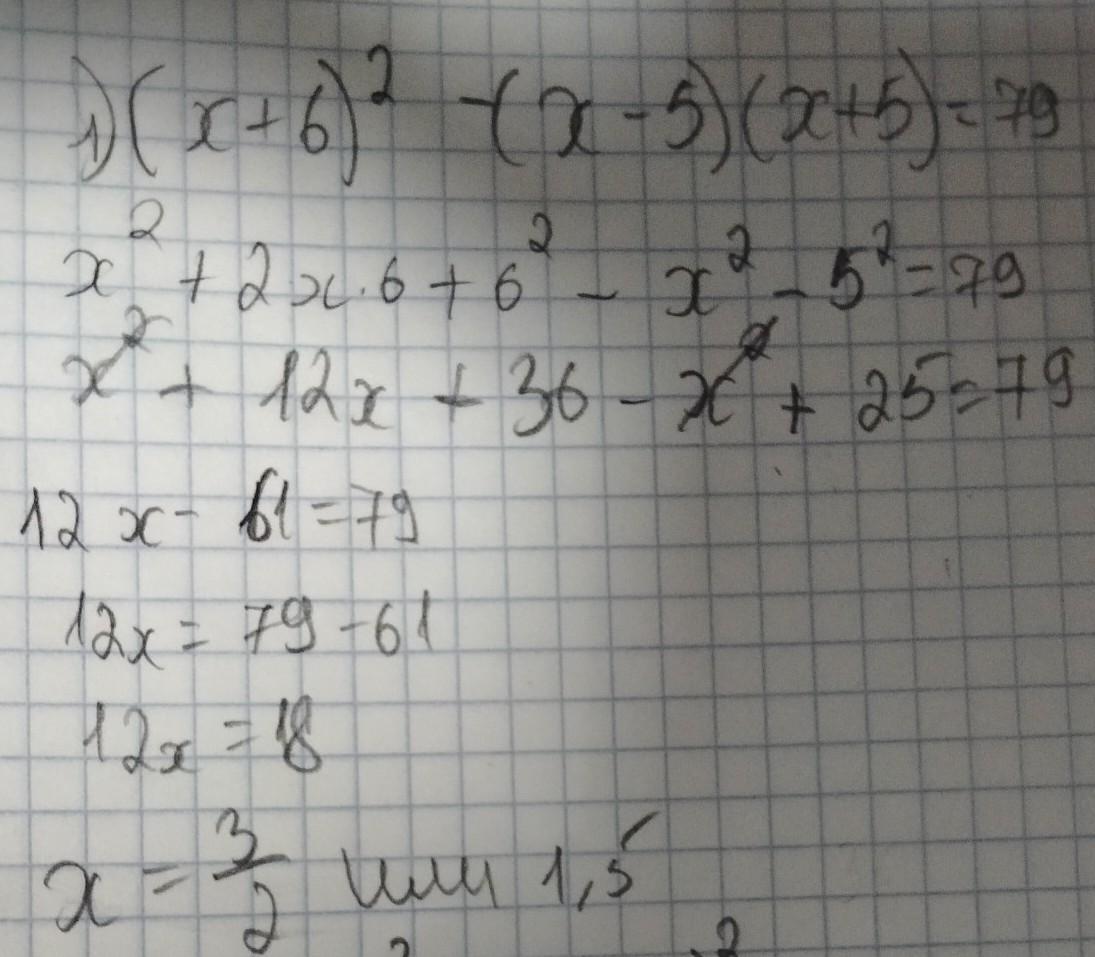 1) (x+6)² -(x-5)(x+5)=79
x² +2x·6+6² - x² - 5²=79
x² + 12x + 36 - x² + 25=79
12x- 61=79
12x= 79-61
12x =18
x = 3/2 или 1,5